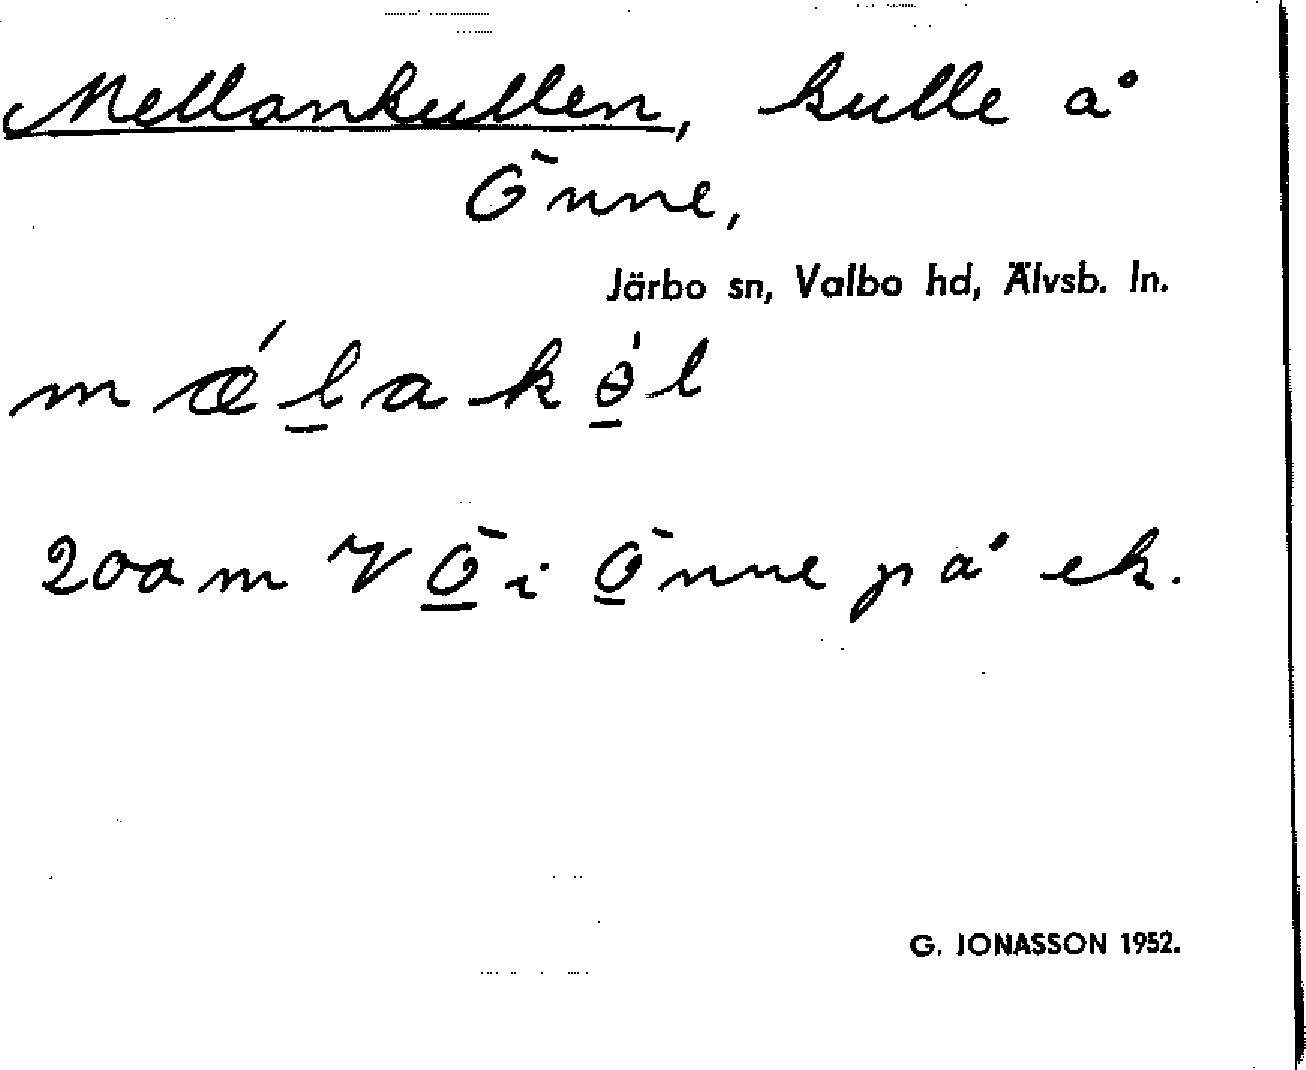 Mellankullen, kulle å
Önne,
Järbo sn, Valbo hd, Älvsb. ln.
mǽl̲akɵ̲́l
200 m V Ö̲ i Ö̲nne på ek.
G. JONASSON 1952.